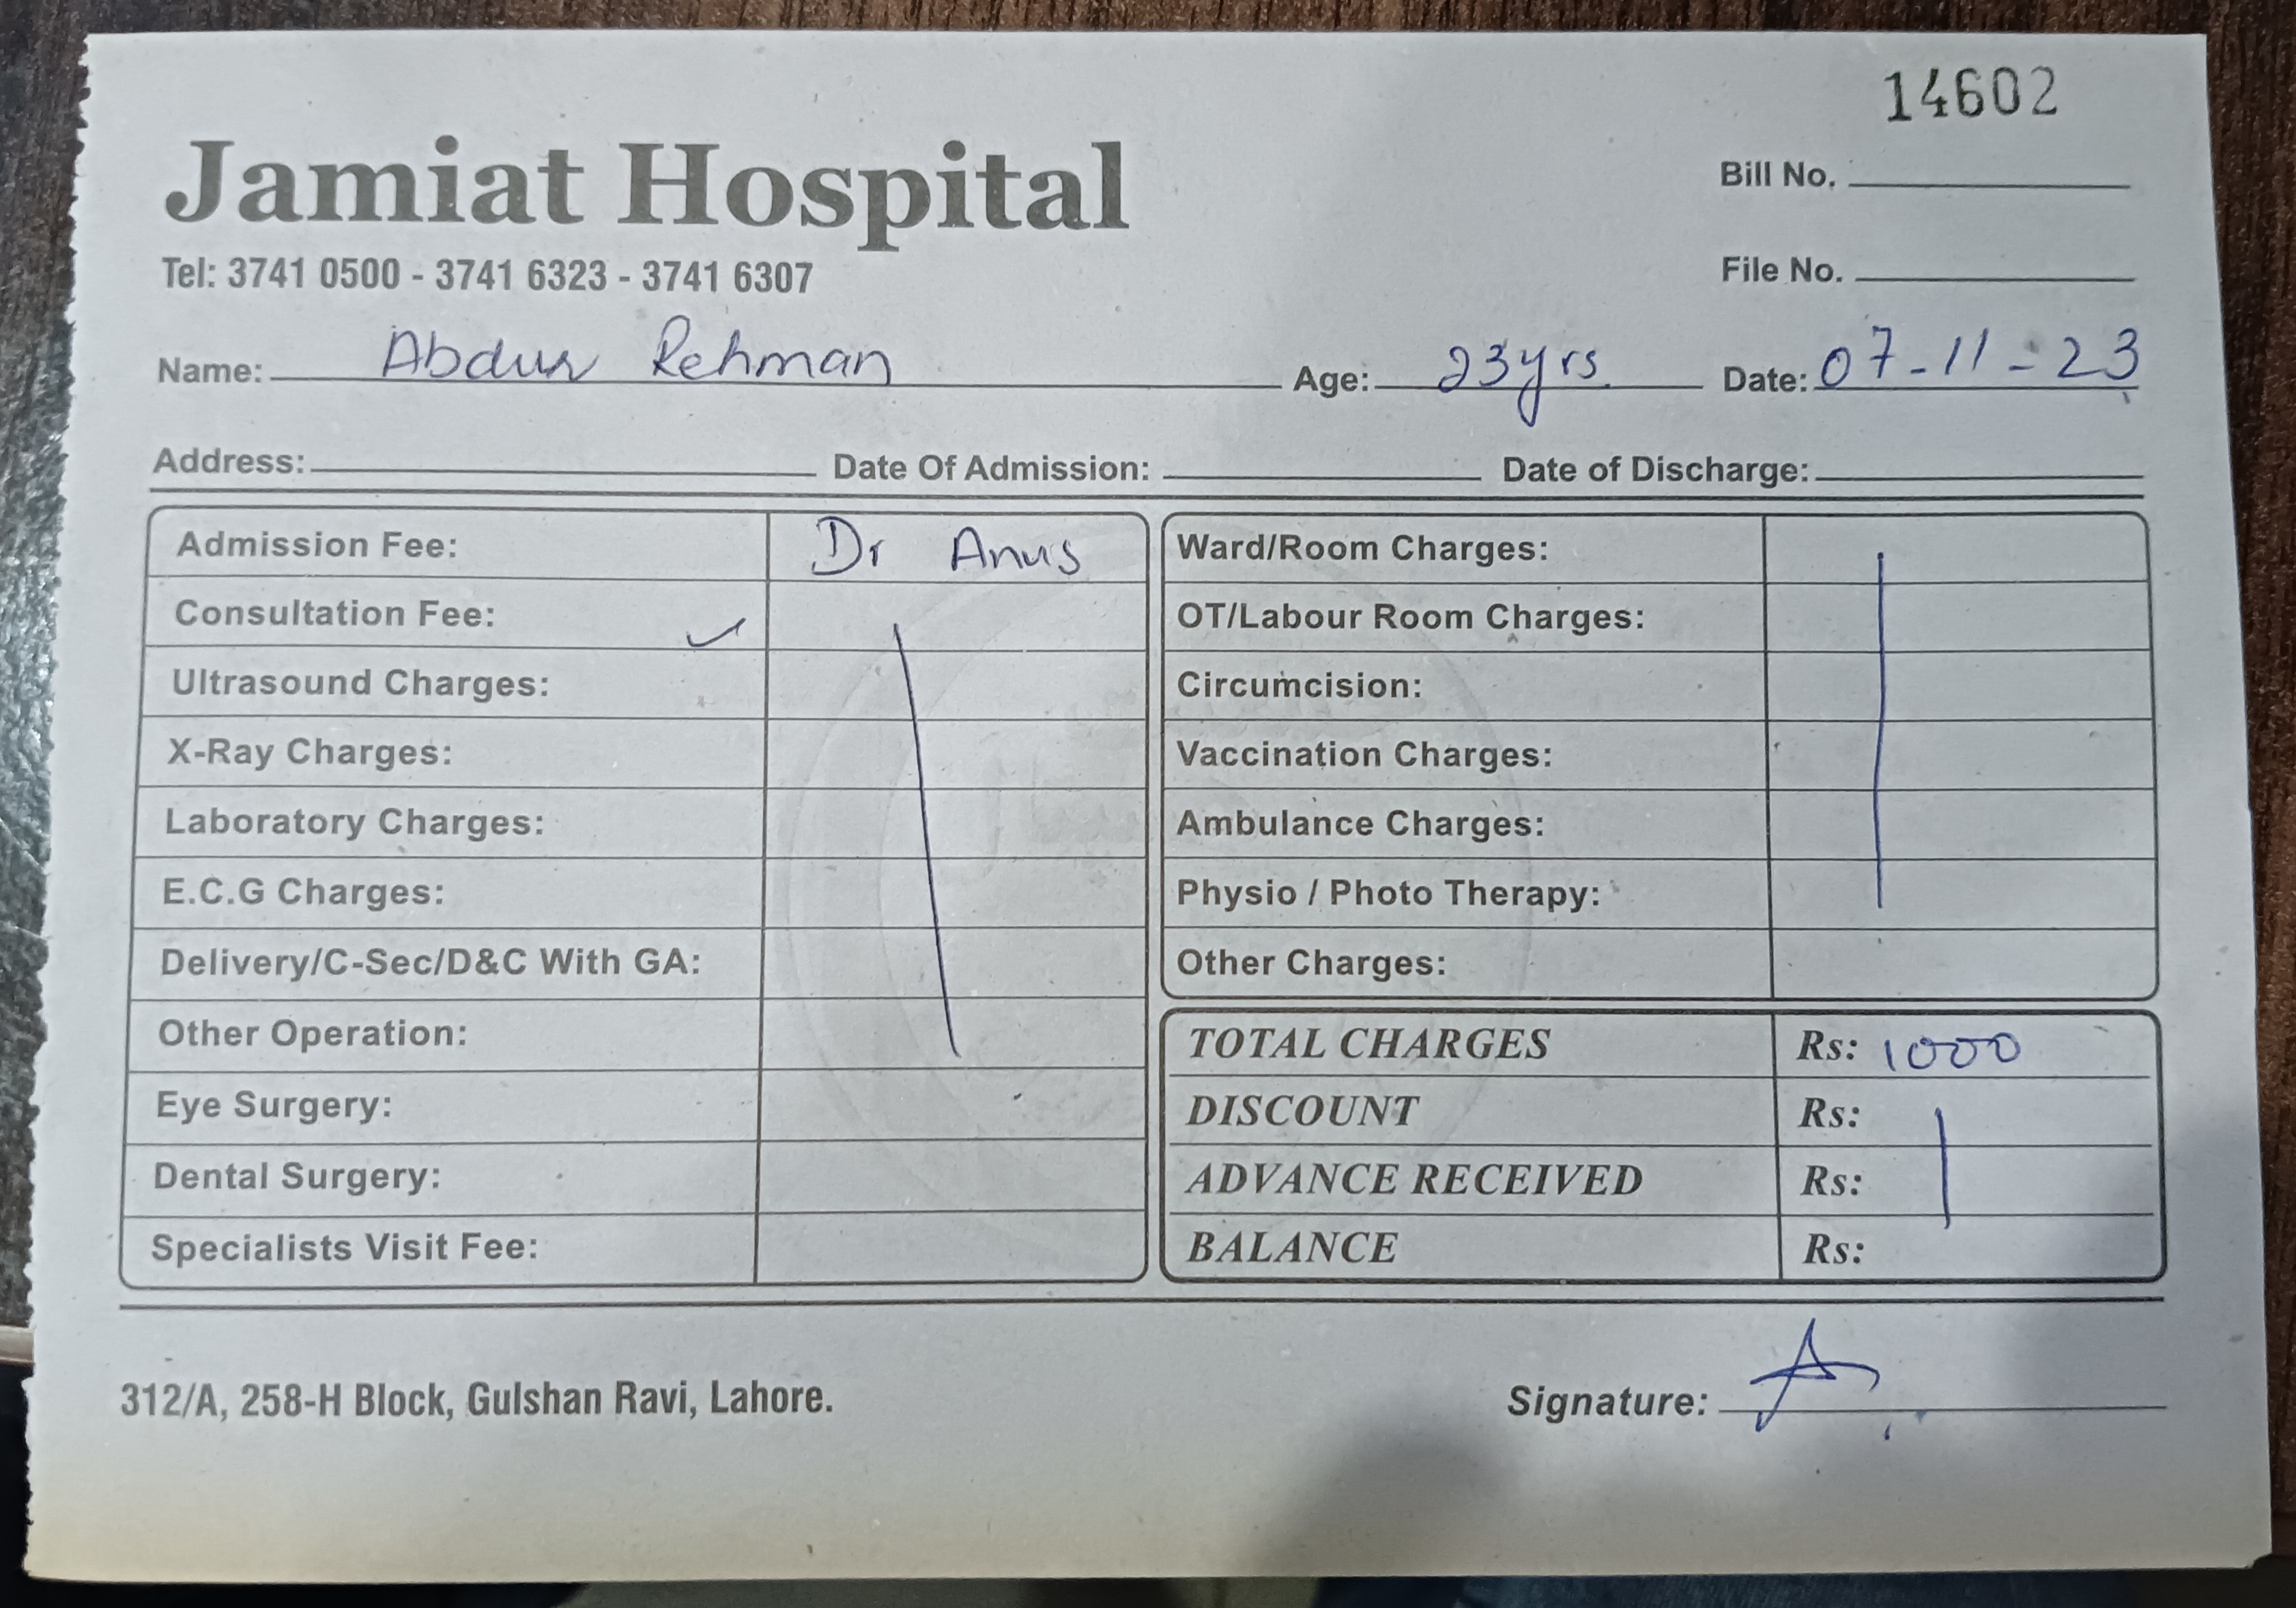 14602
Jamiat Hospital
Bill No.
Tel: 3741 0500 - 3741 6323 - 3741 6307
File No.
Name: Abdur Rehman Age: 23yrs Date: 07-11-23
Address: Date Of Admission: Date of Discharge:
Admission Fee: Dr Anus
Consultation Fee: ✓
Ultrasound Charges:
X-Ray Charges:
Laboratory Charges:
E.C.G Charges:
Delivery/C-Sec/D&C With GA:
Other Operation:
Eye Surgery:
Dental Surgery:
Specialists Visit Fee:
Ward/Room Charges:
OT/Labour Room Charges:
Circumcision:
Vaccination Charges:
Ambulance Charges:
Physio / Photo Therapy:
Other Charges:
TOTAL CHARGES Rs: 1000
DISCOUNT Rs:
ADVANCE RECEIVED Rs:
BALANCE Rs:
312/A, 258-H Block, Gulshan Ravi, Lahore.
Signature: